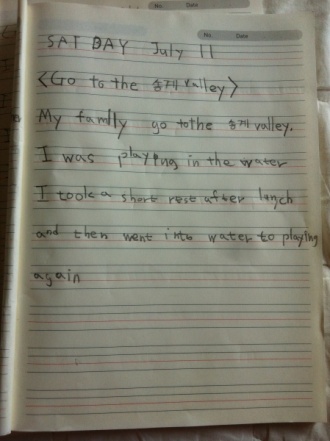 No. Date
No. Date
SAT DAY July 11
<Go to the 송계 valley>
My family go to the 송계 valley.
I was playing in the water
I took a short rest after lunch
and then went into water to playing
again